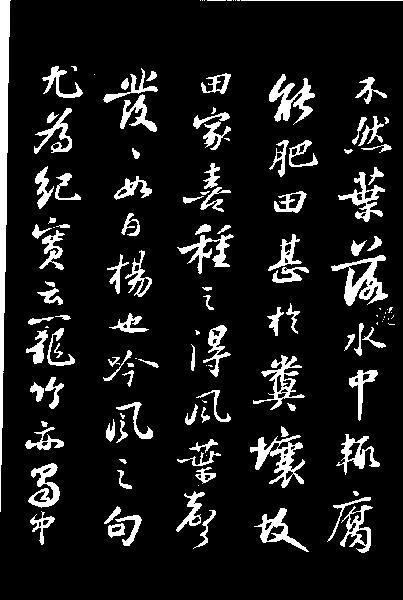 不然葉落泥水中輒腐
能肥田甚於糞壤故
田家喜種之得風葉聲
發〻如白楊也吟風之句
尤為紀實云籠竹亦蜀中